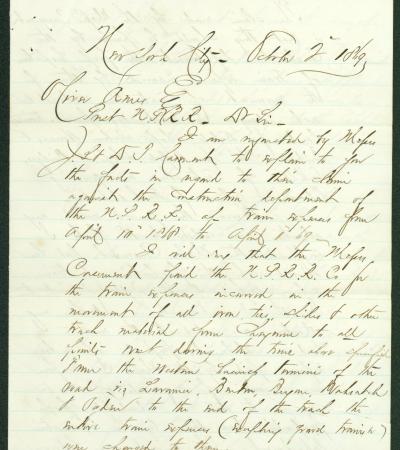 New York City - October 2d 1869
Oliver Ames Esq
Prest U.P.R.R. - Dr Sir -
I am requested by Messrs
J.S. & D.T. Casement to explain to you
the facts in regard to their claim
against the Construction department of
the U.P.R.R. of train expenses from
April 10" 1868 to April 1" 69
I will say that the Messrs
Casement paid the U.P.R.R. Co for
the train expenses incurred in the
movement of all iron, ties, slides & other
track material from Cheyenne to all
points west during the time above specified
From the Western business termini of the
road viz Laramie, Benton, Bryan, Wahsatch
& Ogden to the end of the track the
entire train expenses (excepting gravel trains)
were charged to them